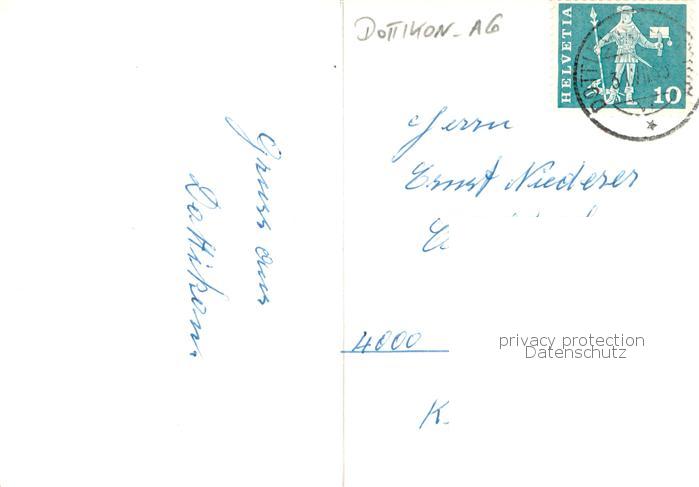 DOTTIKON-AG
HELVETIA
10
DOTTI
Herrn
Ernst Niederer
4000
K.
privacy protection
Datenschutz
Gruss aus
Dottikon